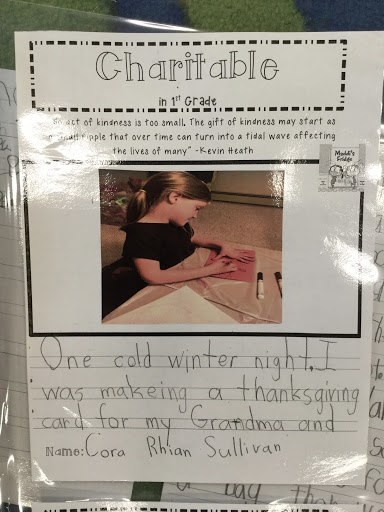 Charitable
in 1st Grade
act of kindness is too small. The gift of kindness may start as
ripple that over time can turn into a tidal wave affecting
the lives of many" -Kevin Heath
Maddi's
Fridge
One cold winter night. I
was makeing a thanksgiving
card for my Grandma and
Name: Cora Rhian Sullivan
a day